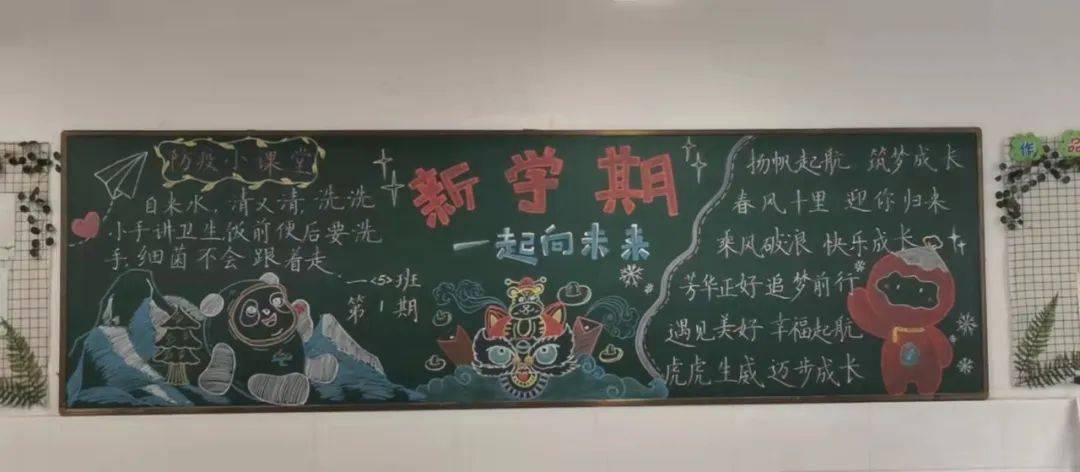 防疫小课堂
自来水,清又清,洗洗
小手讲卫生饭前便后要洗
手,细菌不会跟着走.
一<5>班
第1期
新学期
一起向未来
扬帆起航 筑梦成长
春风十里 迎你归来
乘风破浪 快乐成长
芳华正好 追梦前行
遇见美好 幸福起航
虎虎生威 迈步成长
作品